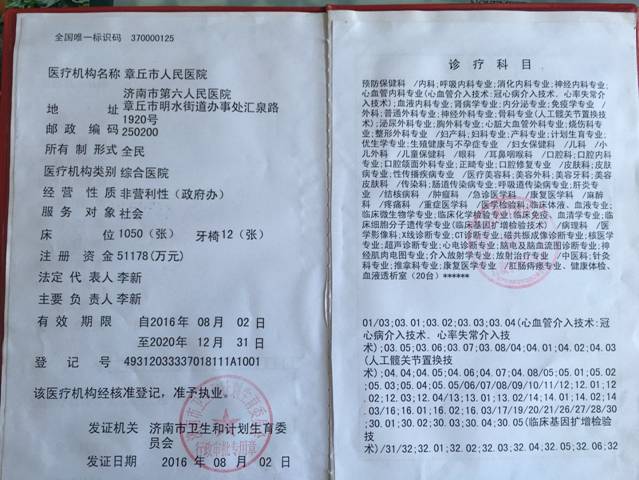 全国唯一标识码 370000125
医疗机构名称 章丘市人民医院
济南市第六人民医院
地 址 章丘市明水街道办事处汇泉路
1920号
邮 政 编 码 250200
所 有 制 形式 全民
医疗机构类别 综合医院
经 营 性 质 非营利性（政府办）
服 务 对 象 社会
床 位 1050（张） 牙椅12（张）
注 册 资 金 51178(万元)
法定 代 表人 李新
主要 负 责人 李新
有 效 期 限 自2016年 08月 02日
至2020年 12月 31日
登 记 号 49312033337018111A1001
该医疗机构经核准登记，准予执业。
发证机关 济南市卫生和计划生育委
员会
发证日期 2016年 08月 02日
诊疗科目
预防保健科 /内科;呼吸内科专业;消化内科专业;神经内科专业;
心血管内科专业(心血管介入技术:冠心病介入技术、心率失常介
入技术);血液内科专业;肾病学专业;内分泌专业;免疫学专业 /
外科;普通外科专业;神经外科专业;骨科专业(人工髋关节置换技
术);泌尿外科专业;胸外科专业;心脏大血管外科专业;烧伤科专
业;整形外科专业 /妇产科;妇科专业;产科专业;计划生育专业;
优生学专业;生殖健康与不孕症专业 /妇女保健科 /儿科 /小
儿外科 /儿童保健科 /眼科 /耳鼻咽喉科 /口腔科;口腔内科专
业;口腔颌面外科专业;正畸专业;口腔修复专业 /皮肤科;皮肤
病专业;性传播疾病专业 /医疗美容科;美容外科;美容牙科;美容
皮肤科 /传染科;肠道传染病专业;呼吸道传染病专业;肝炎专
业 /结核病科 /肿瘤科 /急诊医学科 /康复医学科 /麻醉
科 /疼痛科 /重症医学科 /医学检验科;临床体液、血液专业;
临床微生物学专业;临床化学检验专业;临床免疫、血清学专业;临
床细胞分子遗传学专业(临床基因扩增检验技术) /病理科 /医
学影像科;X线诊断专业;CT诊断专业;磁共振成像诊断专业;核医学
专业;超声诊断专业;心电诊断专业;脑电及脑血流图诊断专业;神
经肌肉电图专业;介入放射学专业;放射治疗专业 /中医科;针灸
科专业;推拿科专业;康复医学专业 /肛肠痔瘘专业、健康体检、
血液透析室（20台）******
01/03;03.01;03.02;03.03;03.04(心血管介入技术:冠
心病介入技术、心率失常介入技
术);03.05;03.06;03.07;03.08/04;04.01;04.02;04.03
(人工髋关节置换技
术);04.04;04.05;04.06;04.07;04.08/05;05.01;05.02
;05.03;05.04;05.05/06/07/08/09/10/11/12;12.01;12
.02;12.03;12.04/13;13.01;13.02/14;14.01;14.02;14
.03/16;16.01;16.02;16.03/17/19/20/21/26/27/28/30
;30.01;30.02;30.03;30.04;30.05(临床基因扩增检验技
术)/31/32;32.01;32.02;32.03;32.04;32.05;32.06;32
行政审批专用章